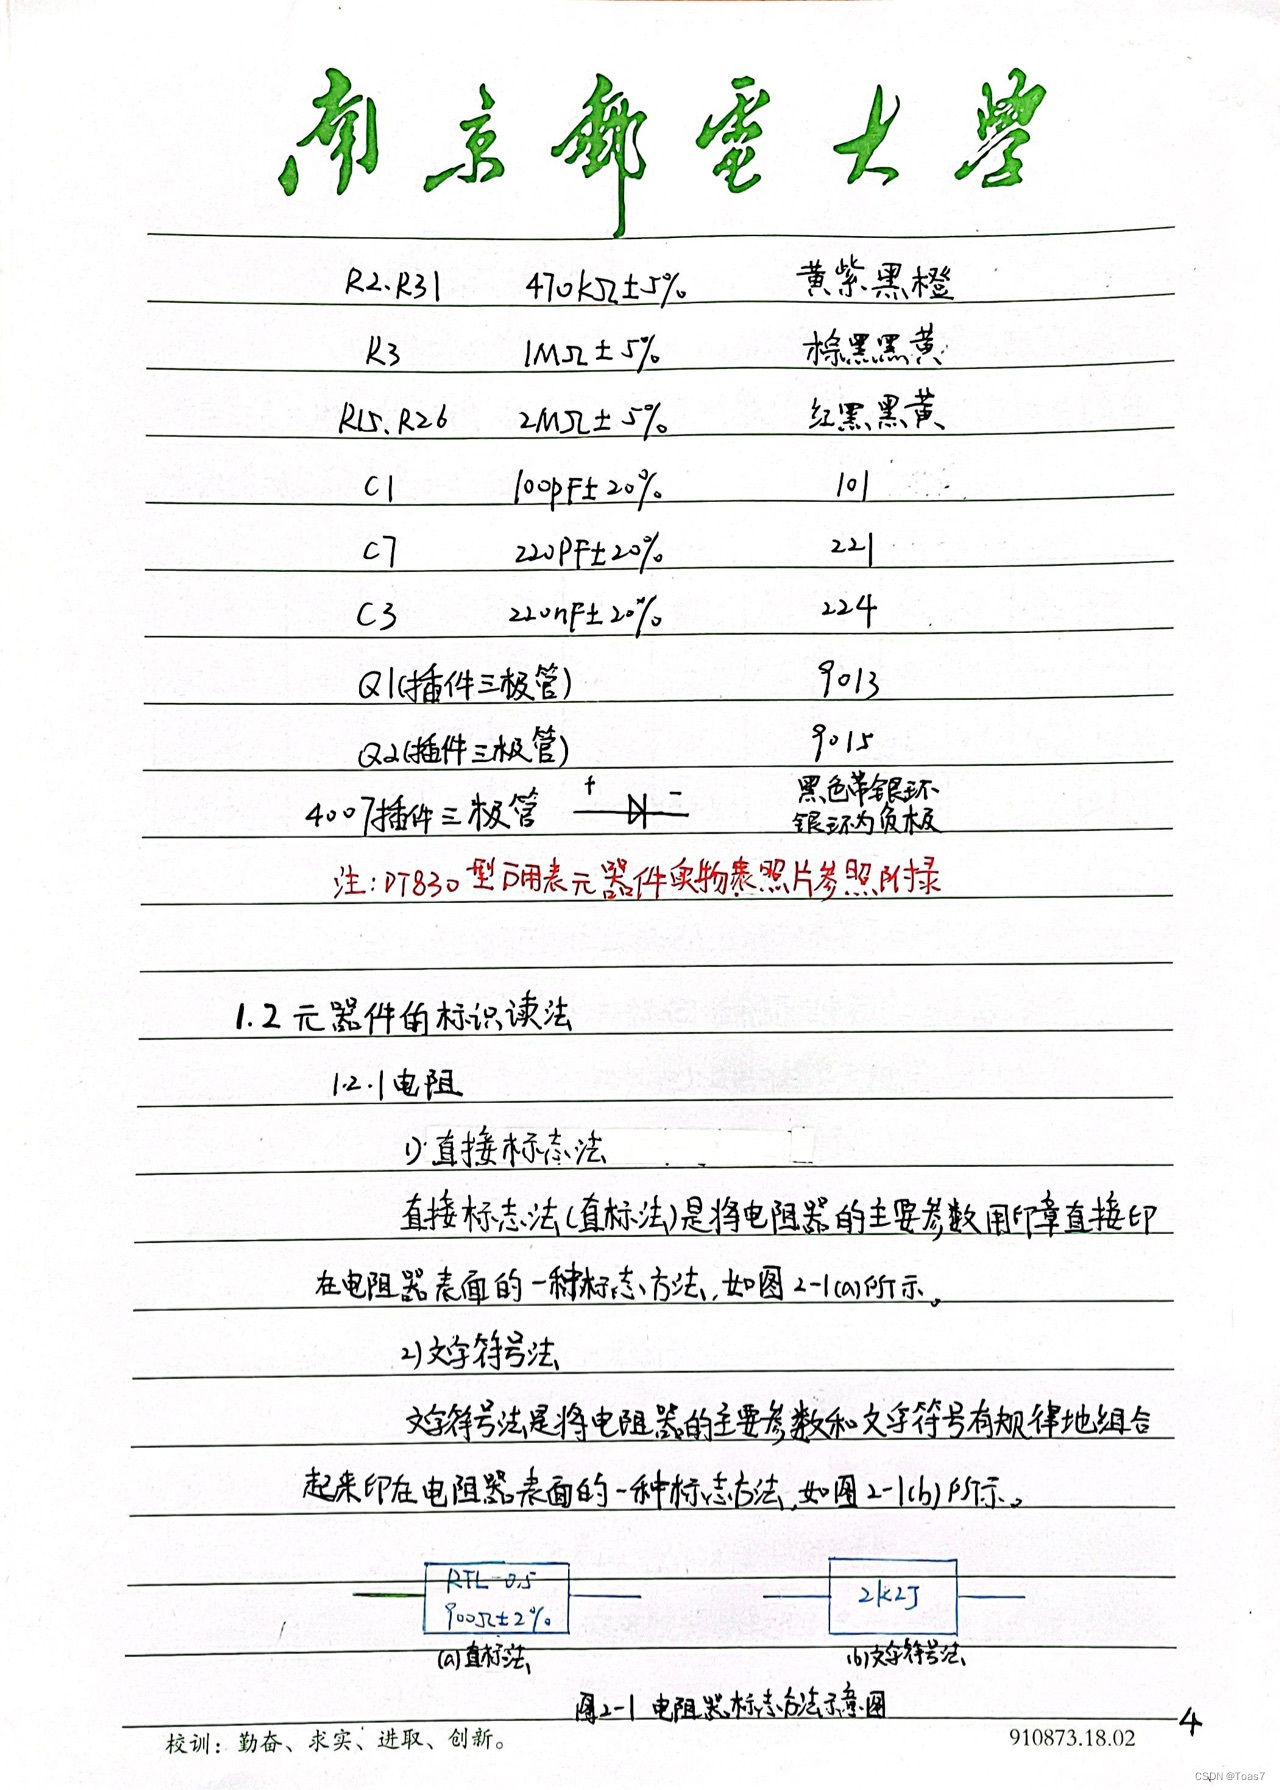 南京郵電大學
R2、R31 470kΩ±5% 黄紫黑橙
R3 1MΩ±5% 棕黑黑黄
R15、R26 2MΩ±5% 红黑黑黄
C1 100pF±20% 101
C7 220PF±20% 221
C3 220nF±20% 224
Q1(插件三极管) 9013
Q2(插件三极管) 9015
4007插件三极管 + - 黑色带银环
银环为负极
注:DT830型万用表元器件实物表照片参照附录
1.2 元器件的标识读法
1.2.1 电阻
1)直接标志法
直接标志法(直标法)是将电阻器的主要参数用印章直接印
在电阻器表面的一种标志方法,如图2-1(a)所示。
2)文字符号法
文字符号法是将电阻器的主要参数和文字符号有规律地组合
起来印在电阻器表面的一种标志方法,如图2-1(b)所示。
RTL-0.5
900Ω±2%
2k2J
(a)直标法
(b)文字符号法
图2-1 电阻器标志方法示意图
4
校训：勤奋、求实、进取、创新。 910873.18.02
CSDN @Toas7